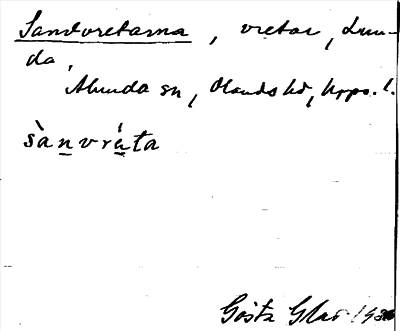 Sandvretarna, vretar, Lun-
da,
Alunda sn, Olands hd, Upps. l.
sànvráta
Gösta Glas 19